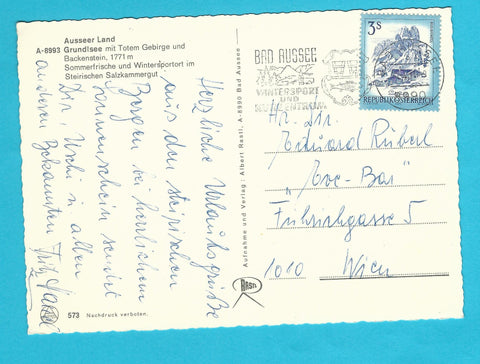 Ausseer Land
A-8993 Grundlsee mit Totem Gebirge und
Backenstein, 1771 m
Sommerfrische und Wintersportort im
Steirischen Salzkammergut
Herzliche Urlaubsgrüße
aus den steirischen
Bergen bei herrlichem
Sonnenschein sendet
Dir, Uschi u. allen
anderen Bekannten Fritz
573 Nachdruck verboten.
Aufnahme und Verlag: Albert Rastl, A-8990 Bad Aussee
RASTL
BAD AUSSEE
WINTERSPORT
UND
KURZENTRUM
8990
3S
REPUBLIK ÖSTERREICH
Hr. Dir.
Eduard Rüberl
"Eve-Bar"
Führichgasse 5
1010 Wien